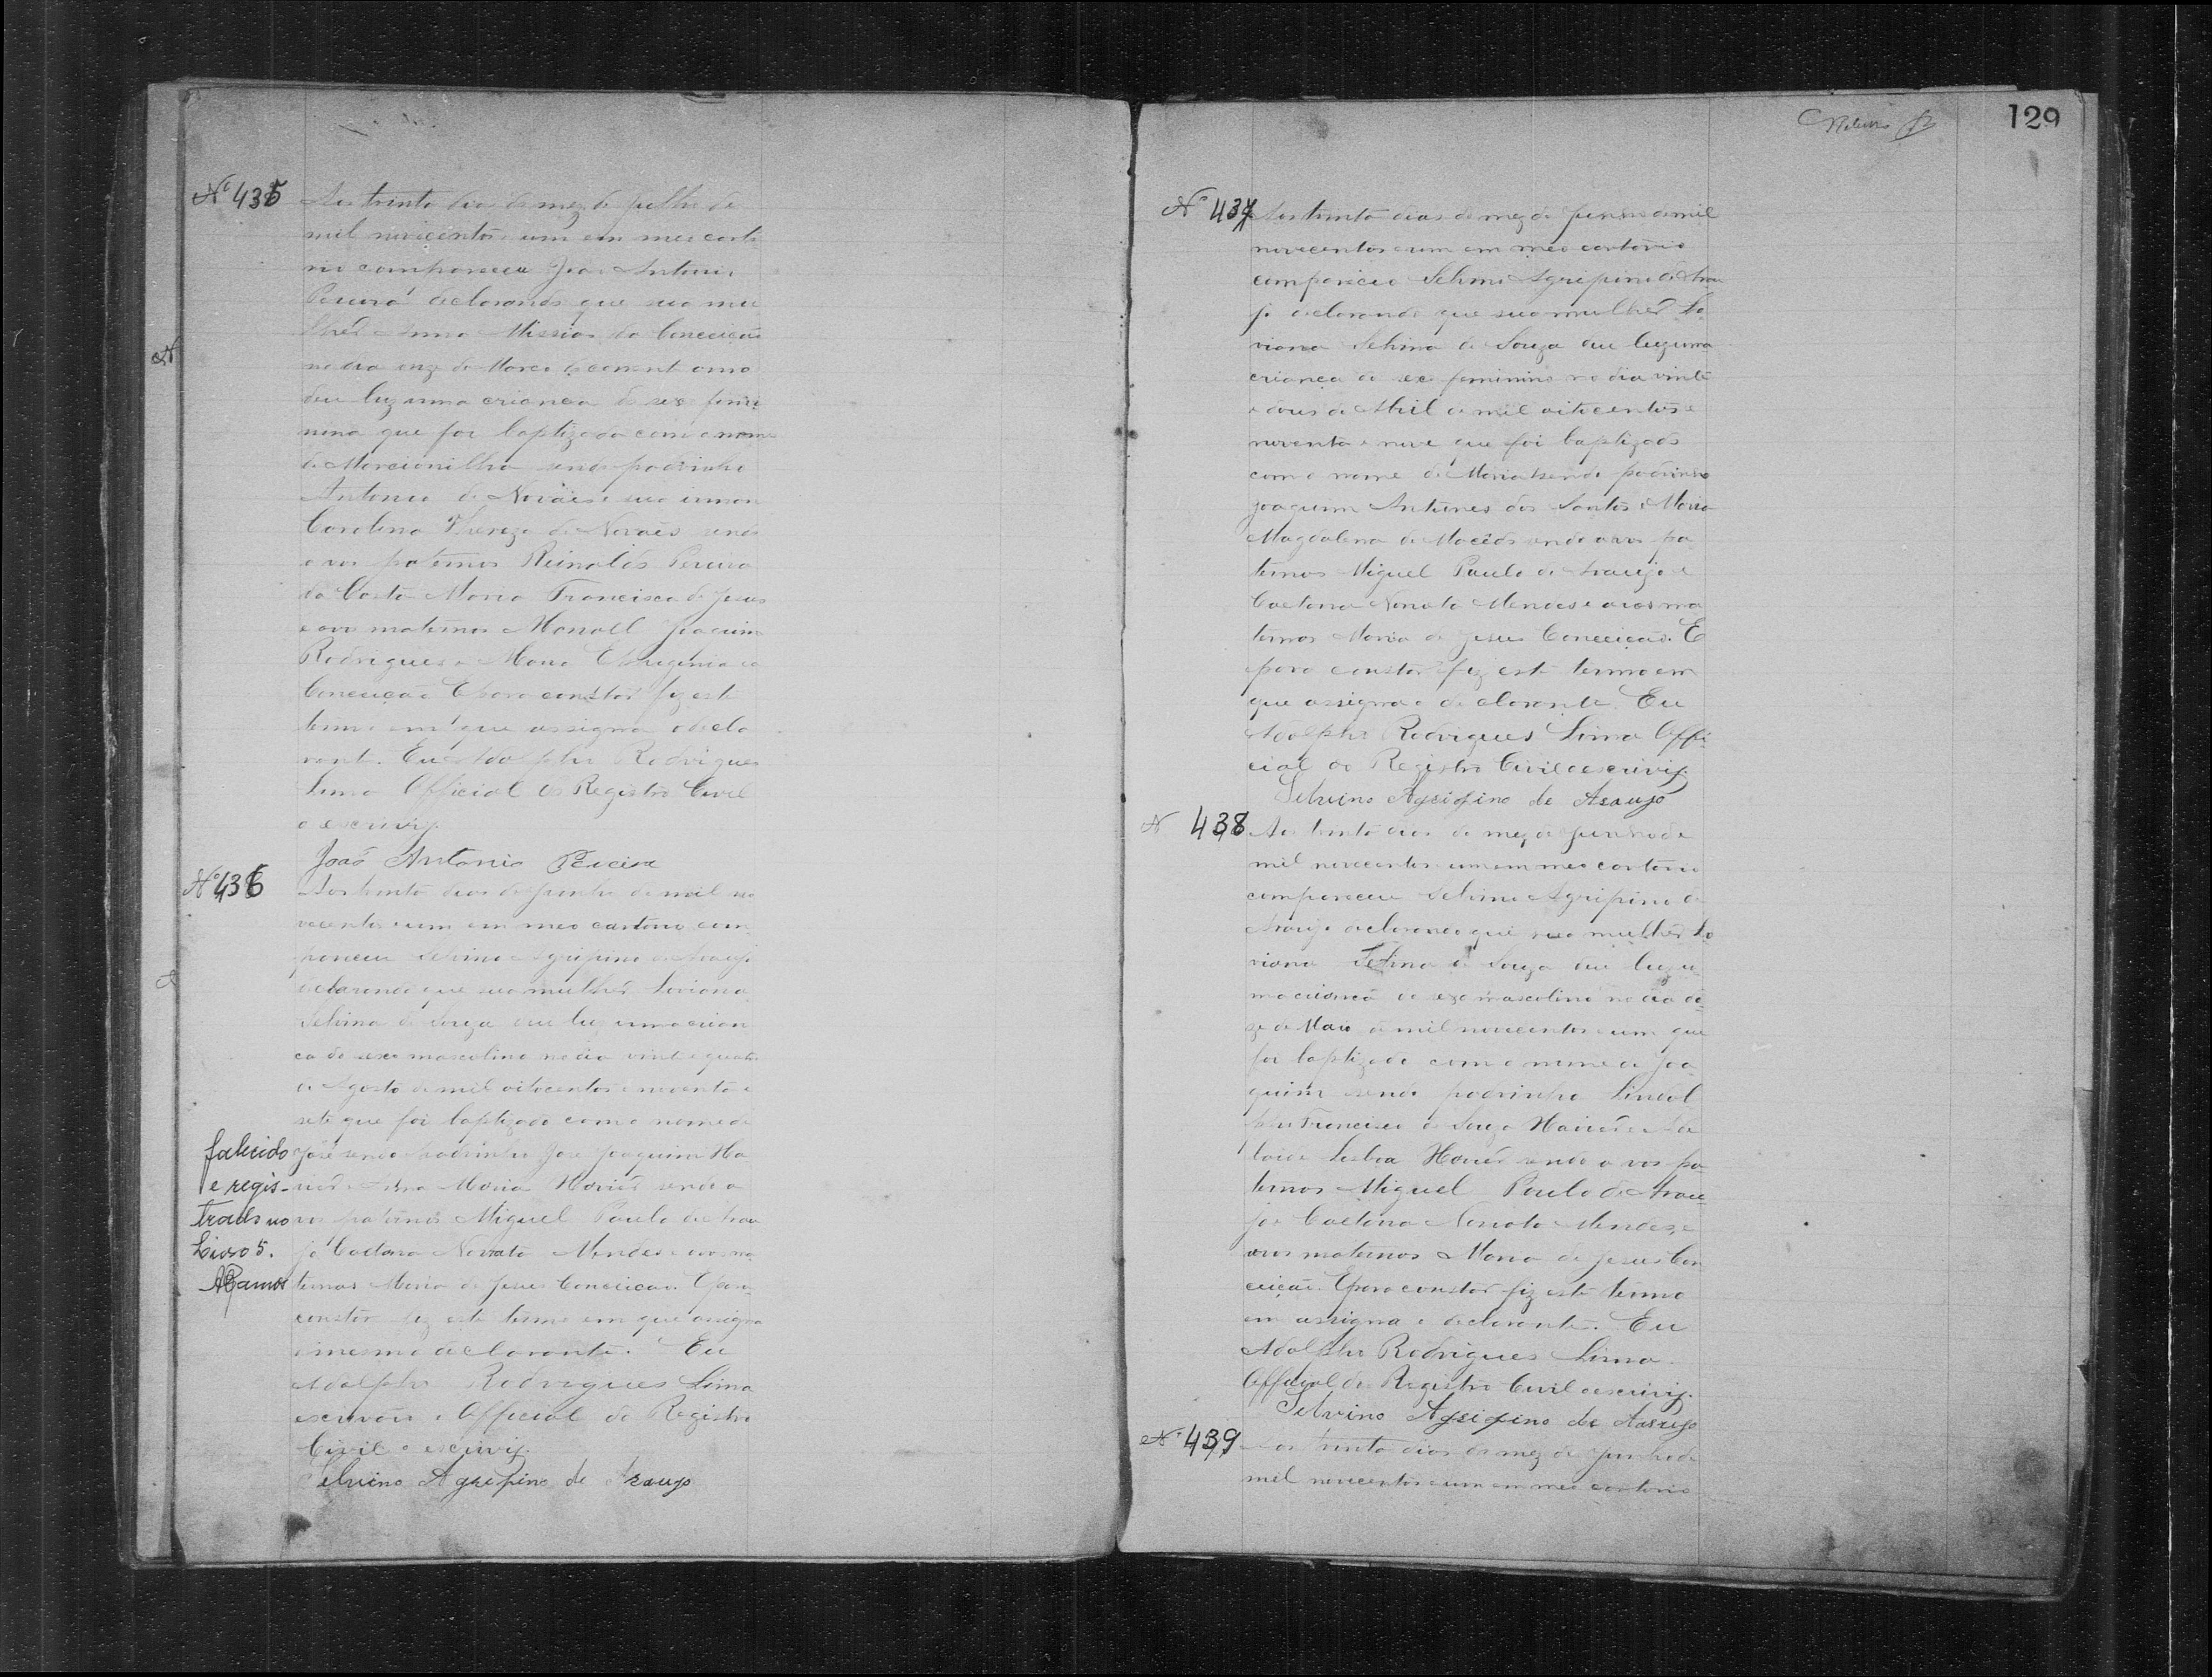 Nº 435
Aos trinta dias do mez de julho de
mil novecentos e um em meu carto
rio compareceu João Antonio
Pereira declarando que sua mu
lher Anna Missias da Conceição
no dia onze de Março do corrent anno
deu luz uma criança do sexo femi
nina que foi baptizada com o nome
de Marcionilha sendo padrinho
Antonio de Novaes e sua irman
Carolina Thereza de Novaes sendo
avos paternos Reinaldo Pereira
da Costa Maria Francisca de Jesus
e avos maternos Manoel Joaquim
Rodrigues e Maria Ephigenia da
Conceição E para constar fiz este
termo em que assigna o decla
rante. Eu Adolpho Rodrigues
Lima Official do Registro Civil
o escrivy.
João Antonio Pereira
Nº 436
Aos trinta dias de junho de mil no
vecentos e um em meo cartorio com
pareceu Selvino Agripino de Arauj
declarando que sua mulher Loviana
Selvina de Souza deu luz uma crian
ça do sexo masculino no dia vinte quatro
de Agosto de mil oitocentos e noventa e
sete que foi baptizado com o nome de
José sendo padrinho José Joaquim Ha
e Anna Maria sendo a
vos paternos Miguel Paulo de Arau
jo Caetana Nonata Mendes e avos ma
ternos Maria de Jesus Conceicão. E para
constar fiz este termo em que assigna
o mesmo declarante. Eu
Adolpho Rodrigues Lima
escrivão e Official do Registro
Civil o escrivy.
Selvino Agripino de Araujo
falecido
e regis-
trado no
Livro 5.
ARamos
129
Nº 437
Aos trinta dias do mez de junho de mil
novecentos e um em meo cartorio
compareceo Selvino Agripino de Arau
jo declarando que sua mulher Lo
viana Selvina de Souza deu luz uma
criança do sexo feminino no dia vinte
e dous de Abril de mil oitocentos e
noventa e nove que foi baptizado
com o nome de Maria sendo padrinho
Joaquim Antunes dos Santos e Maria
Magdalena de Macêdo sendo avos pa
ternos Miguel Paulo de Araujo e
Caetana Nonata Mendes e avos ma
ternos Maria de Jesus Conceição. E
para constar fiz este termo em
que assigna o declarante. Eu
Adolpho Rodrigues Lima Offi
cial do Registro Civil o escrivy.
Selvino Agripino de Araujo
N 438
Aos trinta dias do mez de junho de
mil novecentos e um em meo cartorio
compareceu Selvino Agripino de
Araujo declarando que sua mulher Lo
viana Selvina de Souza deu luz u
ma criança do sexo masculino no dia do
ze de Maio de mil novecentos e um que
foi baptizado com o nome de Joa
quim sendo padrinho Lindol
pho Francisco de Souza
Lisboa sendo avos pa
ternos Miguel Paulo de Arau
jo e Caetana Nonata Mendes e
avos maternos Maria de Jesus Con
ceição. E para constar fiz este termo
em assigna o declarante. Eu
Adolpho Rodrigues Lima
Official do Registro Civil o escrivy.
Selvino Agripino de Araujo
Nº 439
Aos trinta dias do mez de junho de
mil novecentos e um em meo cartorio